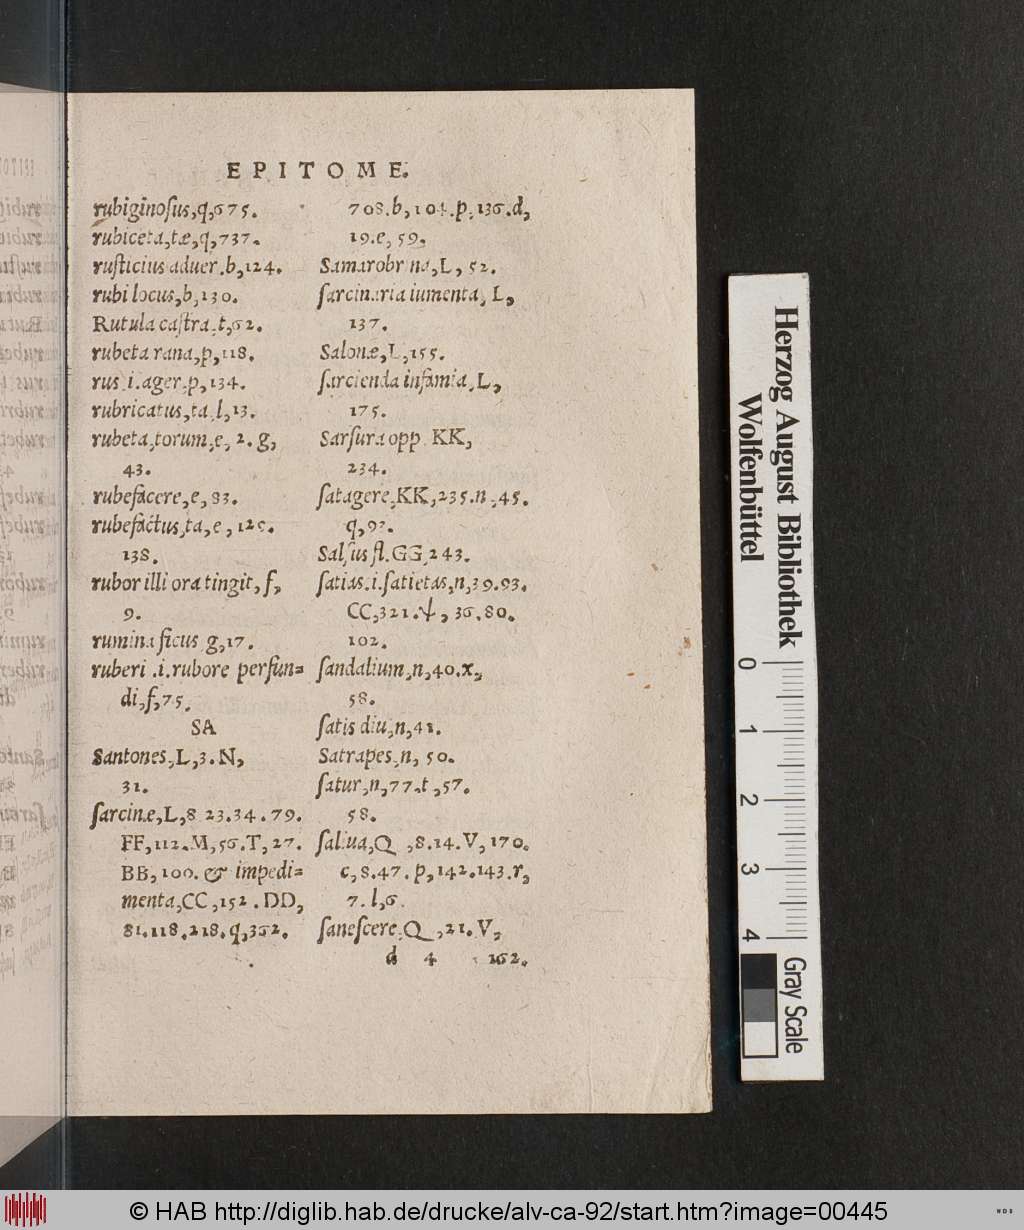 EPITOME.
rubiginoſus,q,675.
rubiceta,tæ,q,737.
ruſticius aduer.b,124.
rubi locus,b,130.
Rutula caſtra,t,62.
rubeta rana,p,118.
rus .i.ager.p,134.
rubricatus,ta,l,13.
rubeta,torum,e, 2. g,
43.
rubefacere,e, 83.
rubefactus,ta,e, 125.
138.
rubor illi ora tingit, f,
9.
rumina ficus g,17.
ruberi .i.rubore perfun=
di,f,75.
SA
Santones,L,3.N,
31.
ſarcinæ,L,8 23.34.79.
FF,112.M,56.T,27.
BB,100. & impedi=
menta,CC,152.DD,
81.118.218.q,362.
708.b,104.p,136.d,
19.e, 59.
Samarobrina,L, 52.
ſarcinaria iumenta, L,
137.
Salonæ,L,155.
ſarcienda infamia,L,
175.
Sarſura opp. KK,
234.
ſatagere,KK,235.n,45.
q,92.
Salſus fl.GG,243.
ſatias.i.ſatietas,n,39.93.
CC,321.ψ, 36.80.
102.
ſandalium,n,40.x,
58.
ſatis diu,n,41.
Satrapes,n, 50.
ſatur,n,77.t,57.
58.
ſaliua,Q ,8.14.V,170.
c,8.47. p,142.143.r,
7.l,6.
ſaneſcere,Q ,21. V,
d 4 162.
Herzog August Bibliothek
Wolfenbüttel
0 1 2 3 4
Gray Scale
© HAB http://diglib.hab.de/drucke/alv-ca-92/start.htm?image=00445